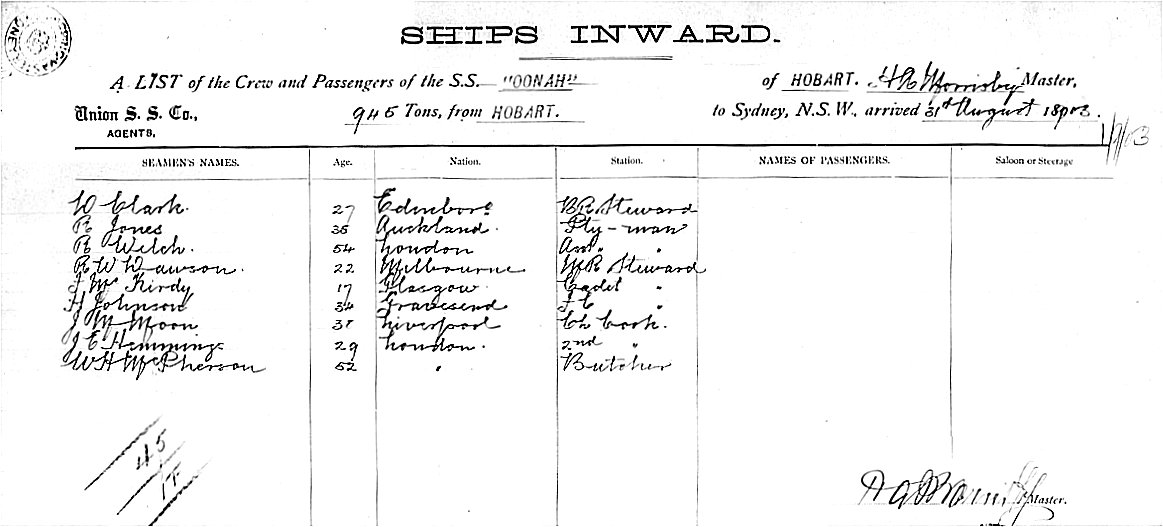 SHIPS INWARD.
A LIST of the Crew and Passengers of the S.S. "OONAH" of HOBART. Master,
Union S. S. Co., 945 Tons, from HOBART. to Sydney, N.S.W., arrived 31st August 1903.
AGENTS, 1/9/03
SEAMEN'S NAMES. Age. Nation. Station. NAMES OF PASSENGERS. Saloon or Steerage
W Clark. 27 Edinboro BR Steward
R Jones 35 Auckland. Pty-man
R Welch. 54 London Asst " "
R W Dawson. 22 Melbourne MR Steward
J McKirdy 17 Glasgow. Cadet "
H Johnson 34 Gravesend F C "
J M Moon 37 Liverpool Ch Cook.
J E Hemmings 29 London. 2nd "
W H McPherson 52 " Butcher
45
Master.